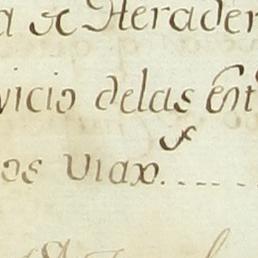 a de Herader
vicio delas Ent
os viax.s....